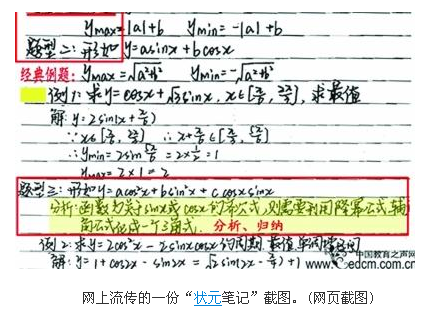 ymax=|a|+b ymin=-|a|+b
题型二:形如y=asinx+bcosx
经典例题: ymax=√a²+b² ymin=-√a²+b²
例1:求y=cosx+√3sinx, x∈[π/6, 2π/3], 求最值
解: y=2sin(x+π/6)
∵x∈[π/6, 2π/3] ∴x+π/6∈[π/3, 5π/6]
∴ymin=2sin5π/6=2×1/2=1
ymax=2×1=2
题型三:形如y=acos²x+bsin²x+ccosxsinx
分析:函数为关于sinx或cosx的幂公式,则需要利用降幂公式,辅
角公式化成一个三角式. 分析、归纳
例2:求y=2cos²x-2sinxcosx的周期,最值,单调
解: y=1+cos2x-sin2x=
中国教育之声网
www.edcm.com.cn
网上流传的一份“状元笔记”截图。(网页截图)